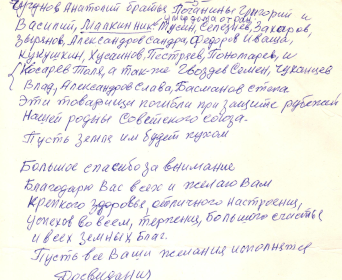 Чугунов Анатолий братья Потанины Григорий и
Василий, Лапкин Ник. Мусин, Селезнёв, Захаров,
умершие от ран
Зырянов, Александров Сандра, Федоров Иваша,
Кукушкин, Хусаинов, Пестряев, Пономарев, и
Косарев Толя, а также Гвоздев Семен, Чуканцев
Влад, Александров Слава, Басманов Степа
Эти товарищи погибли при защите рубежей
Нашей родны Советского союза.
Пусть земля им будет пухом
Большое спасибо за внимание
Благодарю Вас всех и желаю Вам
крепкого здоровье, отличного настроения,
успехов во всем, терпения, большого счастье
и всех земных благ.
Пусть все Ваши желания исполнятся
Досвидания